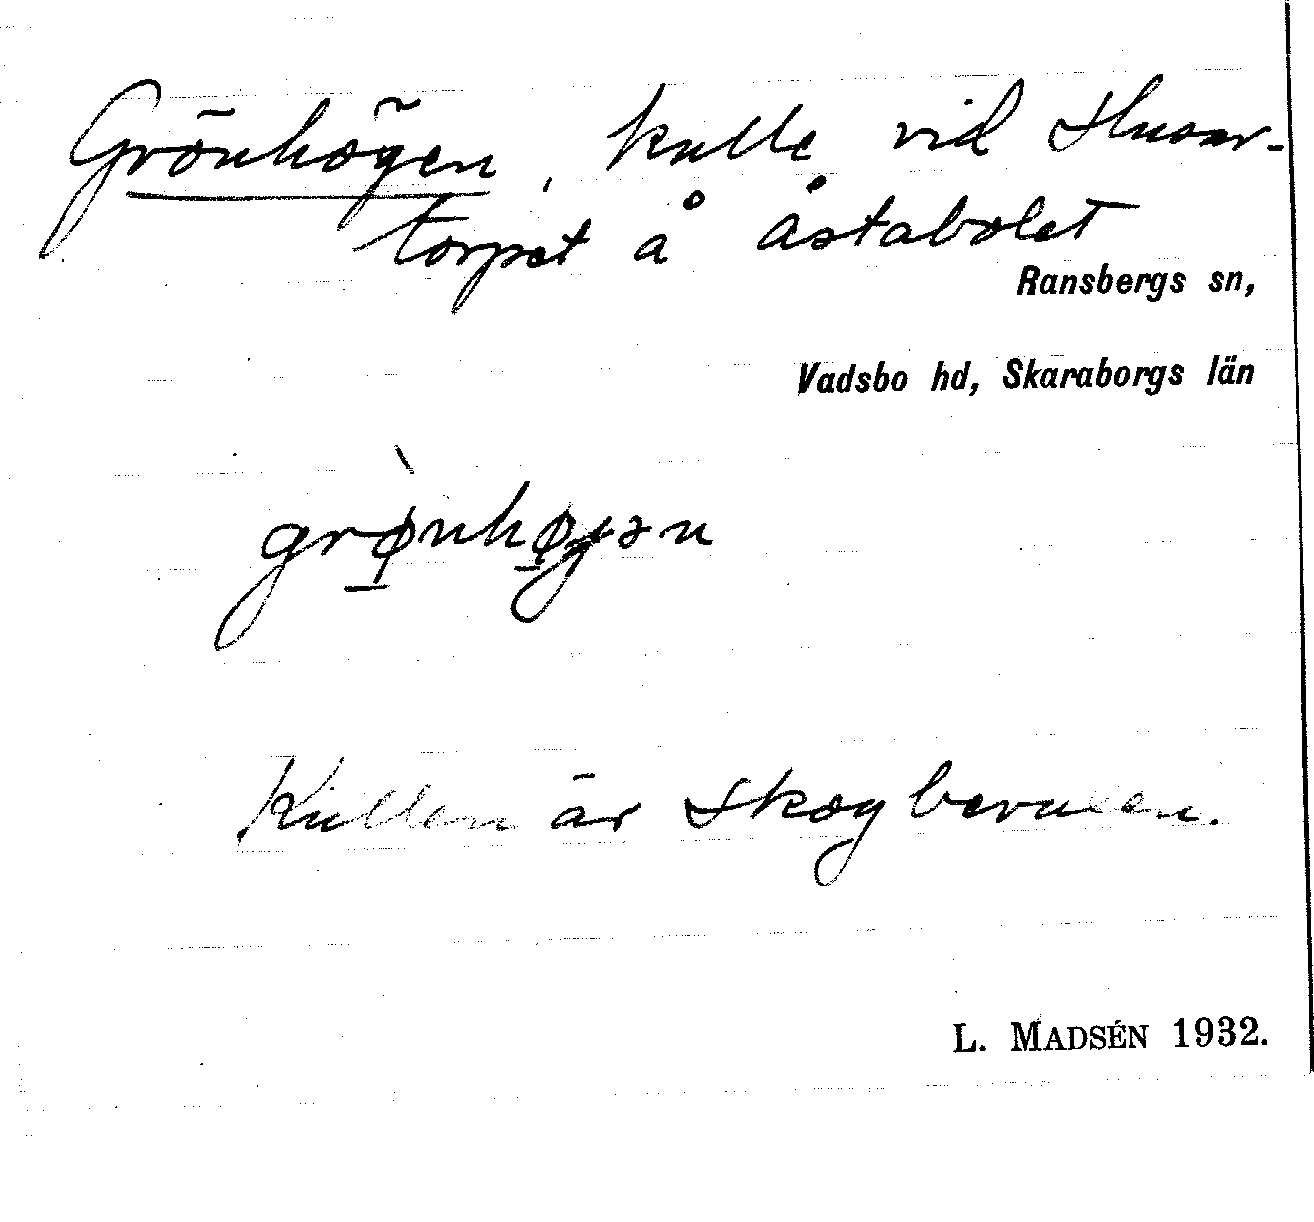 Grönhögen, kulle vid Husar-
torpet å Åstabolet
Ransbergs sn,
Vadsbo hd, Skaraborgs län
grø̀nhøgən
Kullen är skogbevuxen.
L. MADSÉN 1932.